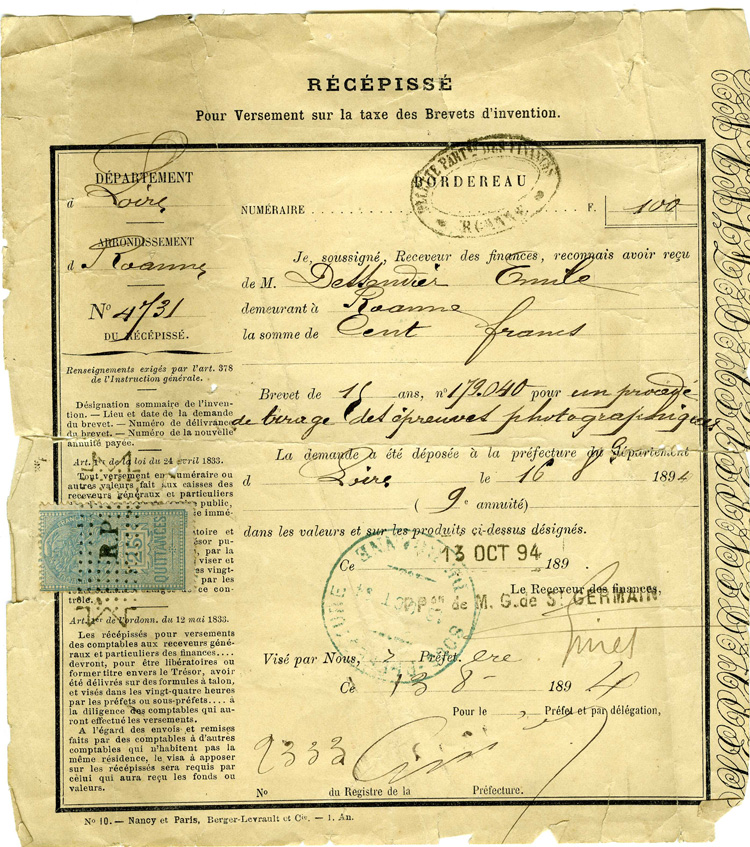 RÉCÉPISSÉ
Pour Versement sur la taxe des Brevets d'invention.
DÉPARTEMENT
d Loire
ARRONDISSEMENT
d Roanne
No 4731
DU RÉCÉPISSÉ.
Renseignements exigés par l'art. 378
de l'Instruction générale.
Désignation sommaire de l'inven-
tion. — Lieu et date de la demande
du brevet. — Numéro de délivrance
du brevet. — Numéro de la nouvelle
annuité payée.
Art. 1er de la loi du 24 avril 1833.
Tout versement en numéraire ou
autres valeurs fait aux caisses des
receveurs généraux et particuliers
public,
imé-
R.P
25c
QUITTANCES
toire et
ésor pu-
, par la
viser et
es vingt-
par les
de ce con-
trôle.
Art. 1er de l'ordonn. du 12 mai 1833.
Les récépissés pour versements
des comptables aux receveurs géné-
raux et particuliers des finances....
devront, pour être libératoires ou
former titre envers le Trésor, avoir
été délivrés sur des formules à talon,
et visés dans les vingt-quatre heures
par les préfets ou sous-préfets.... à
la diligence des comptables qui au-
ront effectué les versements.
A l'égard des envois et remises
faits par des comptables à d'autres
comptables qui n'habitent pas la
même résidence, le visa à apposer
sur les récépissés sera requis par
celui qui aura reçu les fonds ou
valeurs.
BORDEREAU
RECETTE PARTre DES FINANCES
ROANNE
NUMÉRAIRE F. 100
Je, soussigné, Receveur des finances, reconnais avoir reçu
de M. Dessendier Emile
demeurant à Roanne
la somme de Cent francs
Brevet de 15 ans, no 179.040 pour un procédé
de tirage des épreuves photographiques
La demande a été déposée à la préfecture du département
d Loire le 16 1894
( 9e annuité)
dans les valeurs et sur les produits ci-dessus désignés.
Ce 13 OCT 94 189
Le Receveur des finances,
de M. G. de St GERMAIN
Visé par Nous, Préfet
Ce 13 8 1894
Pour le Préfet et par délégation,
2333
No du Registre de la Préfecture.
No 10. — Nancy et Paris, Berger-Levrault et Cie. — 1. An.